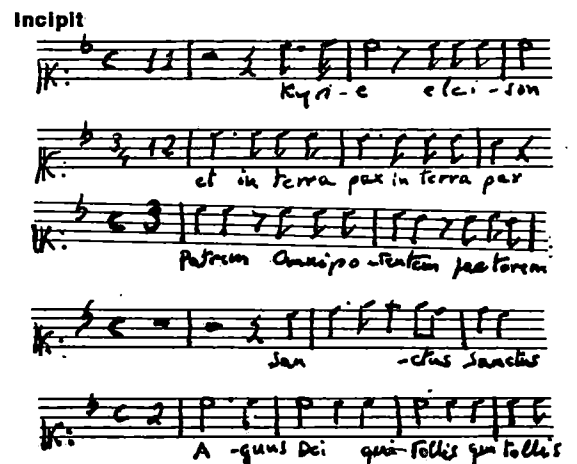 Incipit
Kyri-e elei-son
et in terra pax in terra pax
Patrem Omnipo-tentem factorem
san -ctus sanctus
A -gnus Dei qui tollis qui tollis